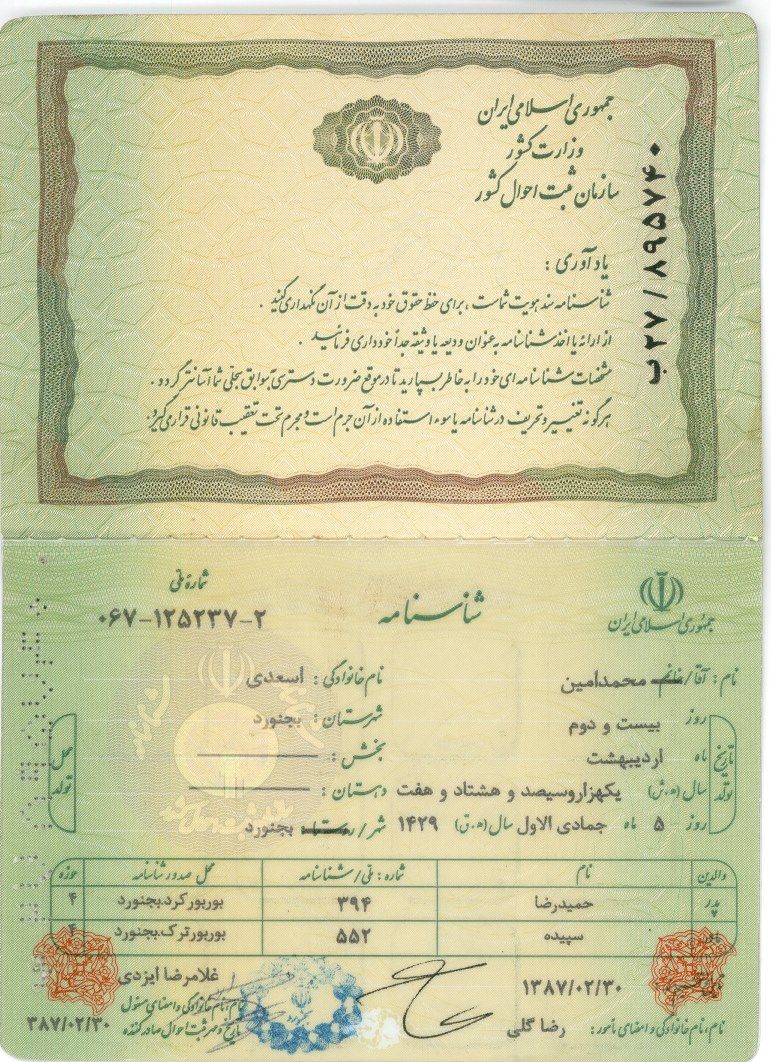 جمهوری اسلامی ایران
وزارت کشور
سازمان ثبت احوال کشور
ب ۲۷/۸۹۵۷۴۰
یادآوری :
شناسنامه سند هویت شماست ، برای حفظ حقوق خود به دقت از آن نگهداری کنید .
از ارائه یا اخذ شناسنامه به عنوان ودیعه یا وثیقه جداً خودداری فرمائید .
مشخصات شناسنامه ای خود را به خاطر بسپارید تا در موقع ضرورت دسترسی به سوابق سجلی شما آسانتر گردد .
هر گونه تغییر و تحریف در شناسنامه یا سوء استفاده از آن جرم است و مجرم تحت تعقیب قانونی قرار می گیرد .
جمهوری اسلامی ایران
شناسنامه
شماره ملی
۰۶۷-۱۲۵۲۳۷-۲
نام : آقا/خانم محمدامین نام خانوادگی : اسعدی
تاریخ تولد
روز بیست و دوم
ماه اردیبهشت
سال (ه.ش) یکهزاروسیصد و هشتاد و هفت
روز ۵ ماه جمادی الاول سال (ه.ق) ۱۴۲۹
محل تولد
شهرستان : بجنورد
بخش :
دهستان :
شهر/روستا : بجنورد
والدین نام شماره : ملی/شناسنامه محل صدور شناسنامه حوزه
پدر حمیدرضا ۳۹۴ بوربورکرد.بجنورد ۴
مادر سپیده ۵۵۲ بوربورترک.بجنورد ۴
۱۳۸۷/۰۲/۳۰
نام، نام خانوادگی و امضای مأمور : رضا گلی
غلامرضا ایزدی
نام، نام خانوادگی و امضای مسئول
تاریخ و مهر ثبت احوال صادر کننده
۳۸۷/۰۲/۳۰